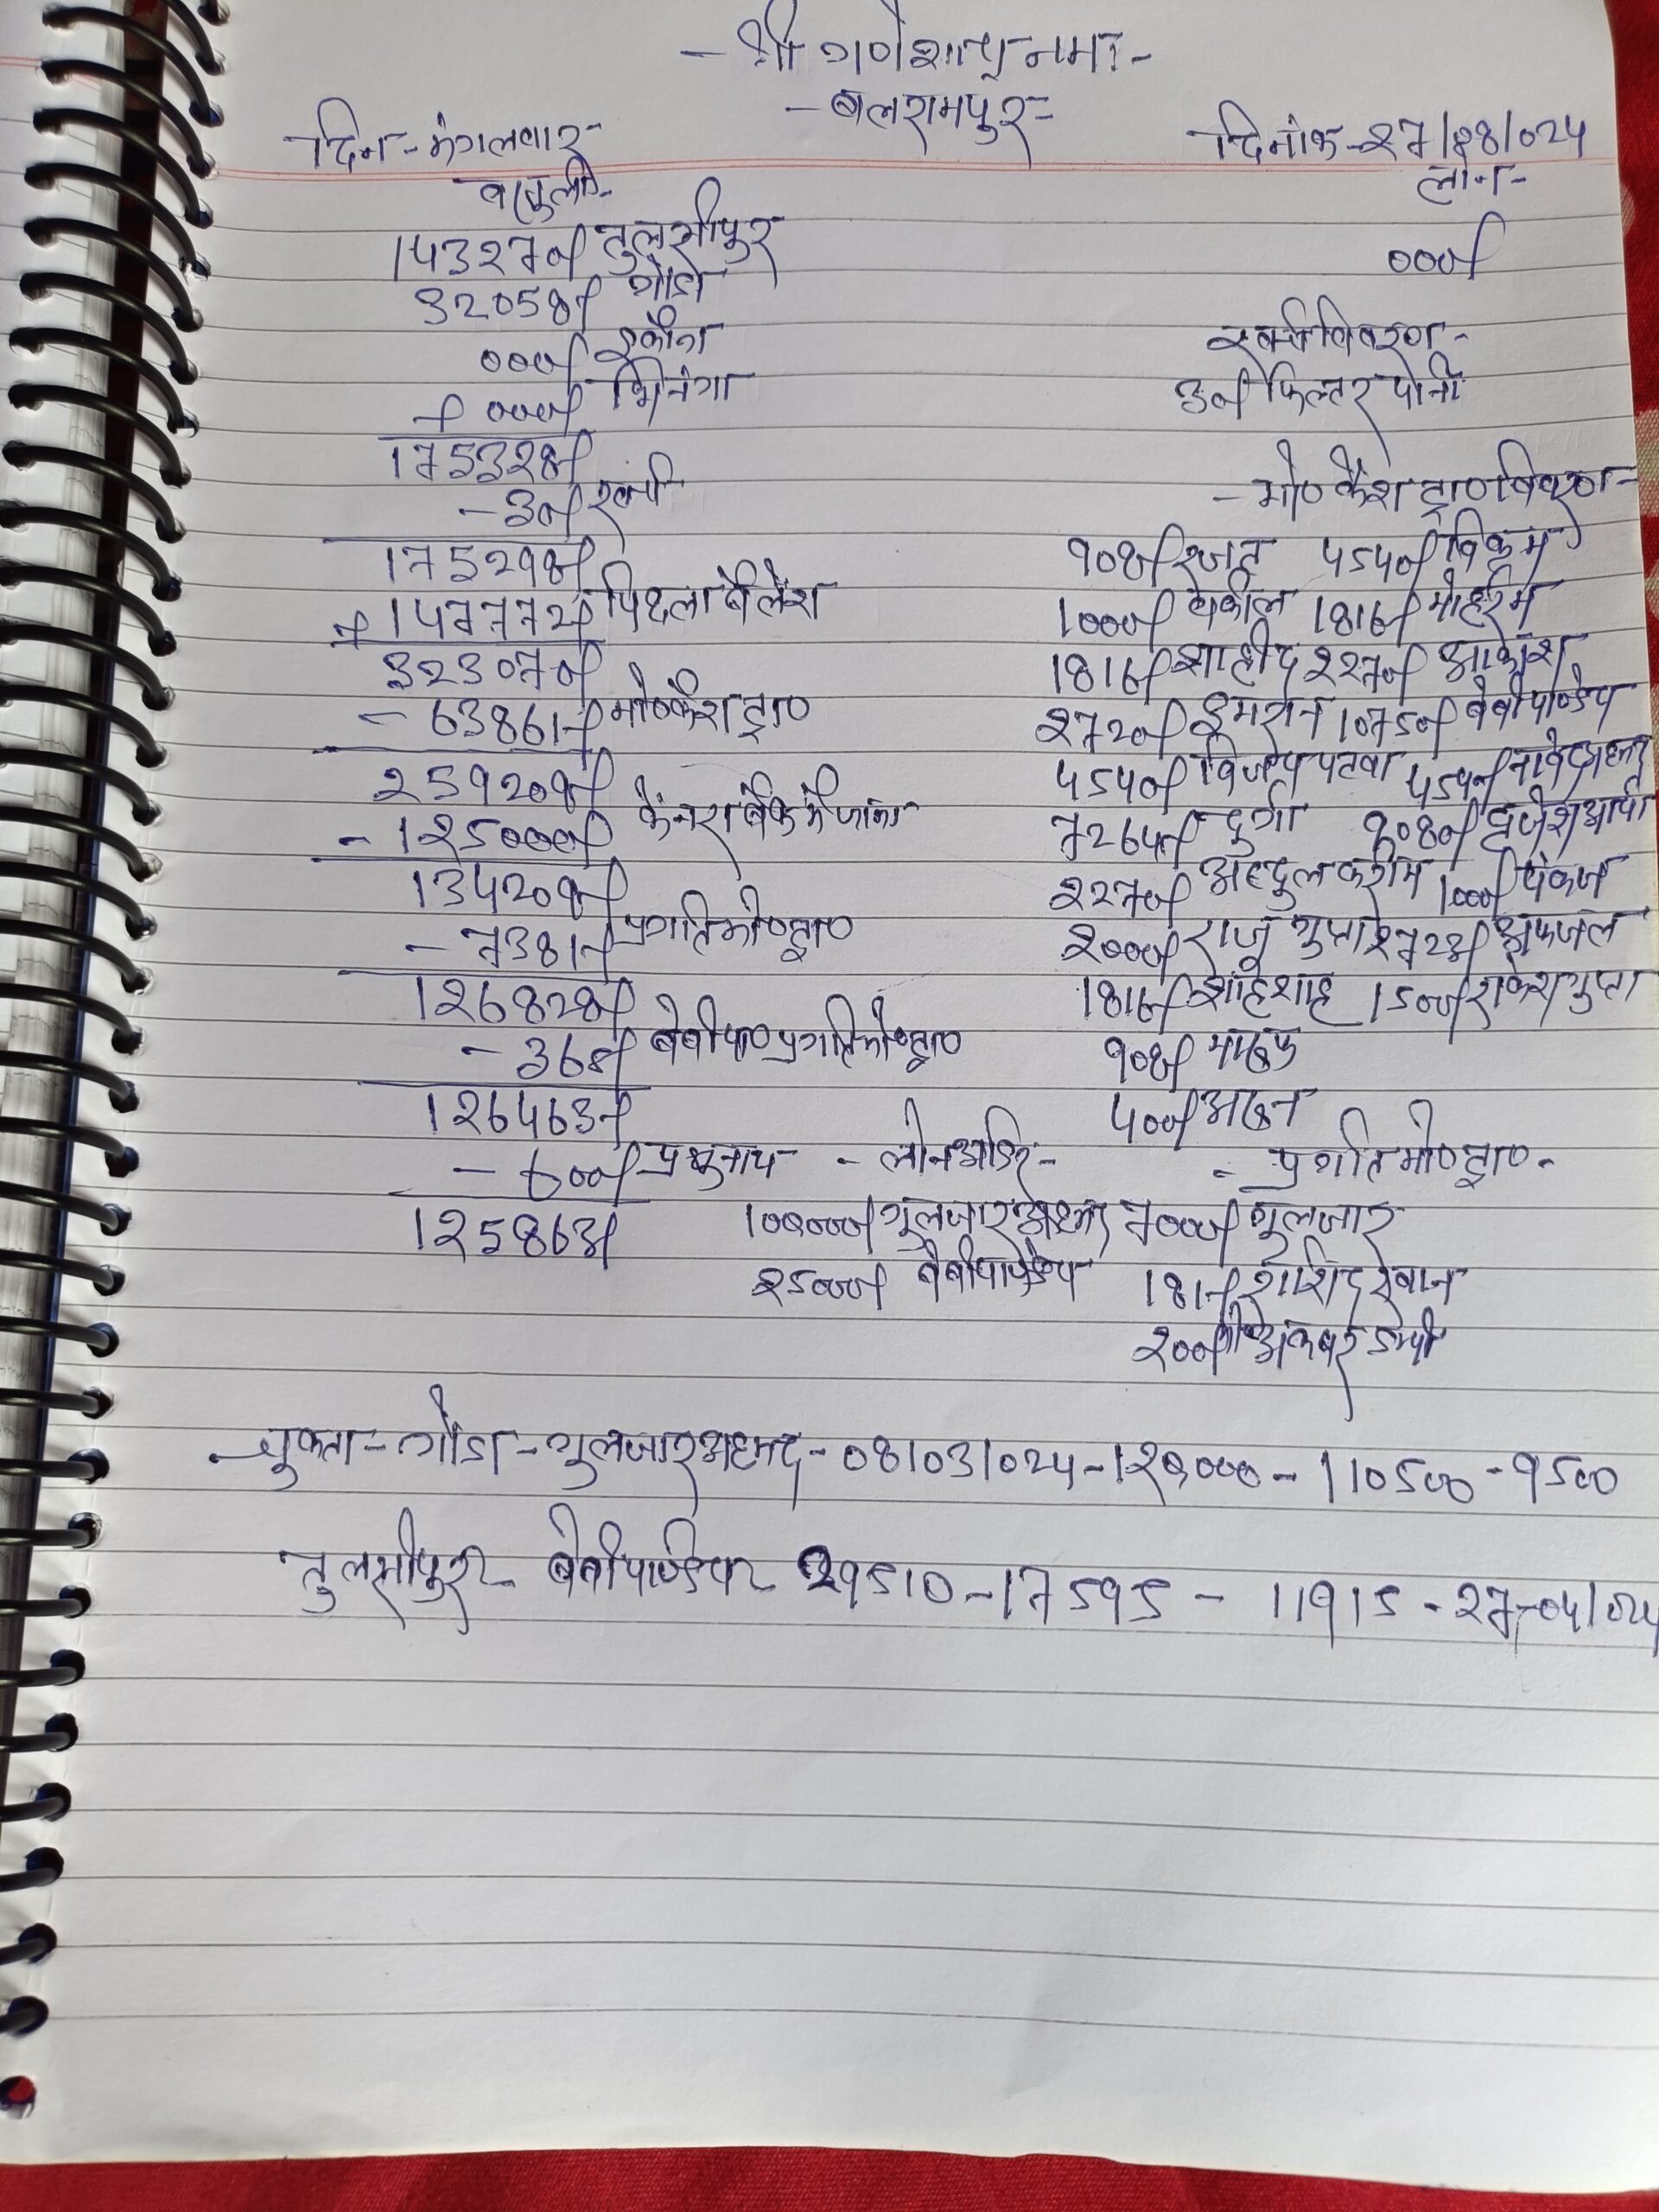 - श्री गणेशाय नमः -
- बलरामपुर -
दिन - मंगलवार - दिनांक - 27/08/024
वसूली - लोन -
143270/ तुलसीपुर 000/
32058/ गोंडा
000/ इकौना खर्च विवरण -
+ 000/ भिनगा 30/ फिल्टर पानी
175328/
- 30/ खर्च - मो० कैश ट्रा० विवरण -
175298/ 908/ रजत 4540/ विक्रम
+ 147772/ पिछला बैलेंश 1000/ वकील 1816/ मोहर्रम
323070/ 1816/ शाहीद 2270/ आकाश
- 63861/ मो० कैश ट्रा० 2720/ इमरान 10750/ बेबी पाण्डेय
259209/ 4540/ विजय पटवा 4540/ जावेद अहमद
- 125000/ केनरा बैंक में जमा 7264/ दुर्गा 9080/ ब्रजेश आर्या
134209/ 2270/ अब्दुल करीम 1000/ पंकज
- 7381/ प्रगति मो० ट्रा० 2000/ राजू गुप्ता 2723/ अफजल
126828/ 1816/ शहंशाह 1500/ राकेश गुप्ता
- 365/ बेबी पा० प्रगति मो० ट्रा० 908/
126463/ 400/
- 600/ - लोन आडर - - प्रगति मो० ट्रा० -
125863/ 100000/ गुलजार अहमद 7000/ गुलजार
25000/ बेबी पाण्डेय 181/ राशिद खान
200/ अकबर
चुकता - गोंडा - गुलजार अहमद - 08/03/024 - 120,000 - 110500 - 9500
तुलसीपुर - बेबी पाण्डेय - 29510 - 17595 - 11915 - 27-04/024